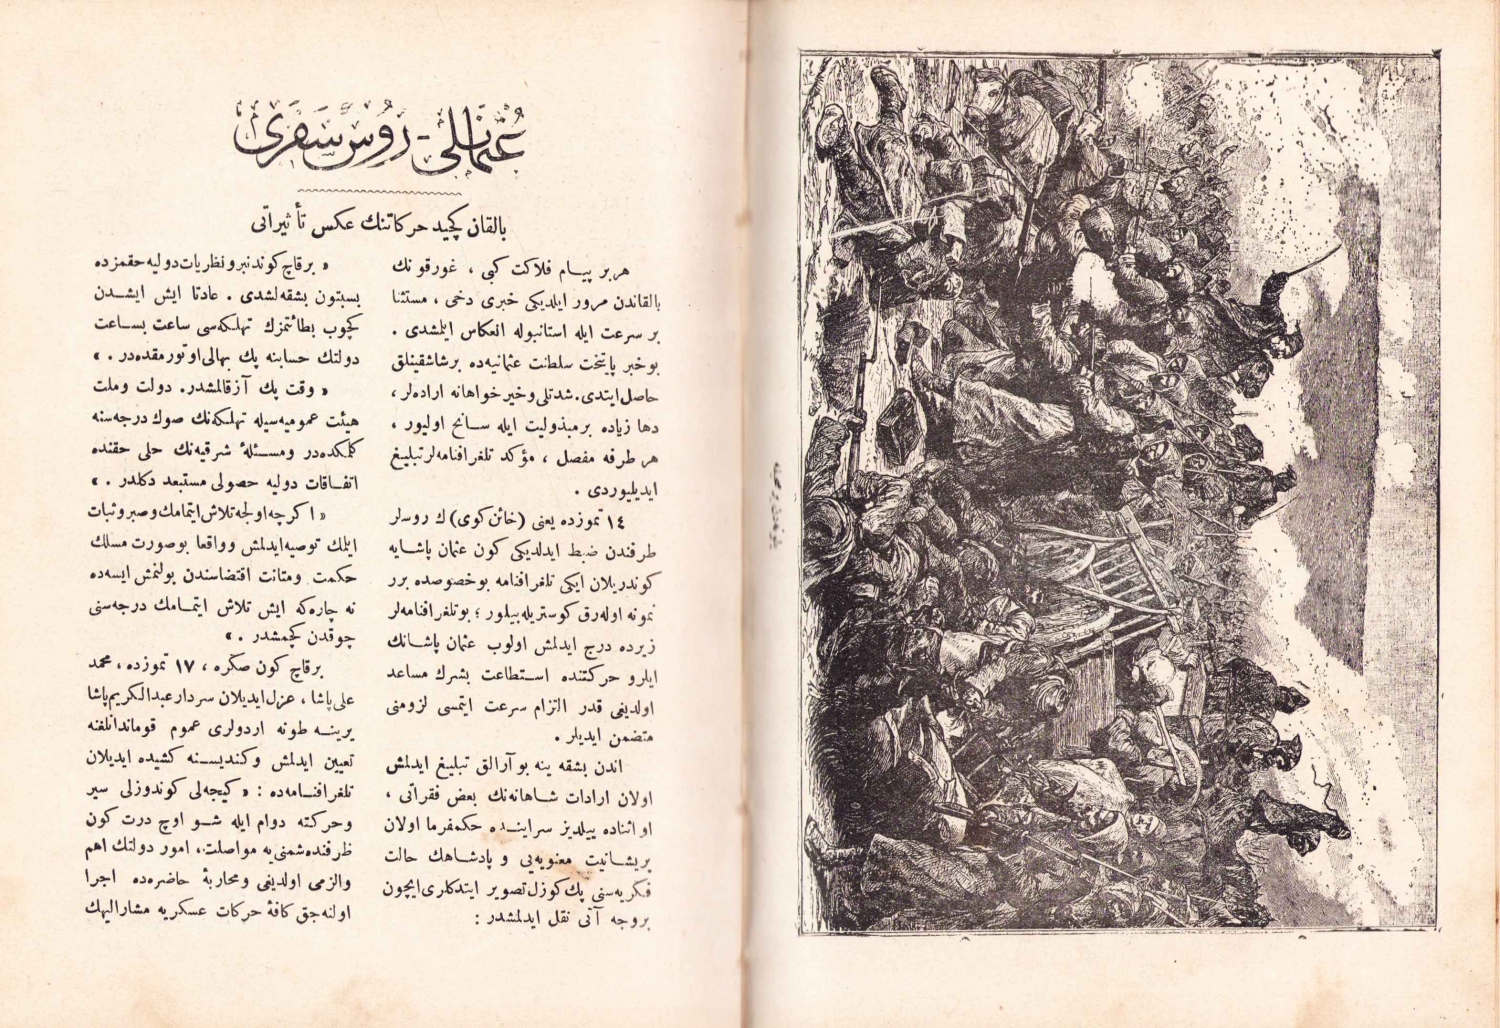 عثمانلی - روس سفری
بالقان كچيد حركاتنك عكس تأثيراتی
هر بر پيام فلاكت كبی ، غورقونك
بالقاندن مرور ايلديكی خبری دخی ، مستثنا
بر سرعت ايله استانبوله انعكاس ايلمشدی .
بو خبر پايتخت سلطنت عثمانيه‌ده بر شاشقينلق
حاصل ايتدی. شدتلی و خيرخواهانه اراده‌لر ،
دها زياده بر مبذوليت ايله سانح اوليور ،
هر طرفه مفصل ، مؤكد تلغرافنامه‌لر تبليغ
ايديليوردی .
١٤ تموزده يعنی (خائن كوی) ك روسلر
طرفندن ضبط ايدلديكی كون عثمان پاشايه
كوندريلان ايكی تلغرافنامه بو خصوصده برر
نمونه اوله‌رق كوستريله‌بيلور ؛ بو تلغرافنامه‌لر
زيرده درج ايدلمش اولوب عثمان پاشانك
ايلرو حركتنده استطاعت بشرك مساعد
اولديغی قدر التزام سرعت ايتمسی لزومنی
متضمن ايديلر .
اندن بشقه ينه بو آرالق تبليغ ايدلمش
اولان ارادات شاهانه‌نك بعض فقراتی ،
او اثناده ييلديز سراينده حكمفرما اولان
پريشانيت معنويه‌يی و پادشاهك حالت
فكريه‌سنی پك كوزل تصوير ايتدكلری ايچون
بروجه آتی نقل ايدلمشدر :
« بر قاچ كوندنبرو نظريات دوليه حقمزده
بستون بشقه‌لشدی . عادتا ايش ايشدن
كچوب بطائتمزك تهلكه‌سی ساعت بساعت
دولتك حسابنه پك بهالی اوتورمقده‌در . »
« وقت پك آز قالمشدر. دولت وملت
هيئت عموميه‌سيله تهلكه‌نك صوك درجه‌سنه
كلمكده‌در ومسئلۀ شرقيه‌نك حلی حقنده
اتفاقات دوليه حصولی مستبعد دكلدر . »
« اكرچه اولجه تلاش ايتمامك وصبر وثبات
ايلمك توصيه ايدلمش وواقعا بو صورت مسلك
حكمت ومتانت اقتضاسندن بولنمش ايسه‌ده
نه چاره‌كه ايش تلاش ايتمامك درجه‌سنی
چوقدن كچمشدر . »
بر قاچ كون صكره ، ١٧ تموزده ، محمد
علی پاشا ، عزل ايديلان سردار عبدالكريم پاشا
يرينه طونه اردولری عموم قوماندانلغنه
تعيين ايدلمش وكنديسنه كشيده ايديلان
تلغرافنامه‌ده : « كيجه‌لی كوندوزلی سير
وحركته دوام ايله شو اوچ درت كون
ظرفنده شمنی‌يه مواصلت، امور دولتك اهم
والزمی اولديغی ومحاربۀ حاضره‌ده اجرا
اولنه‌جق كافۀ حركات عسكريه مشاراليهك